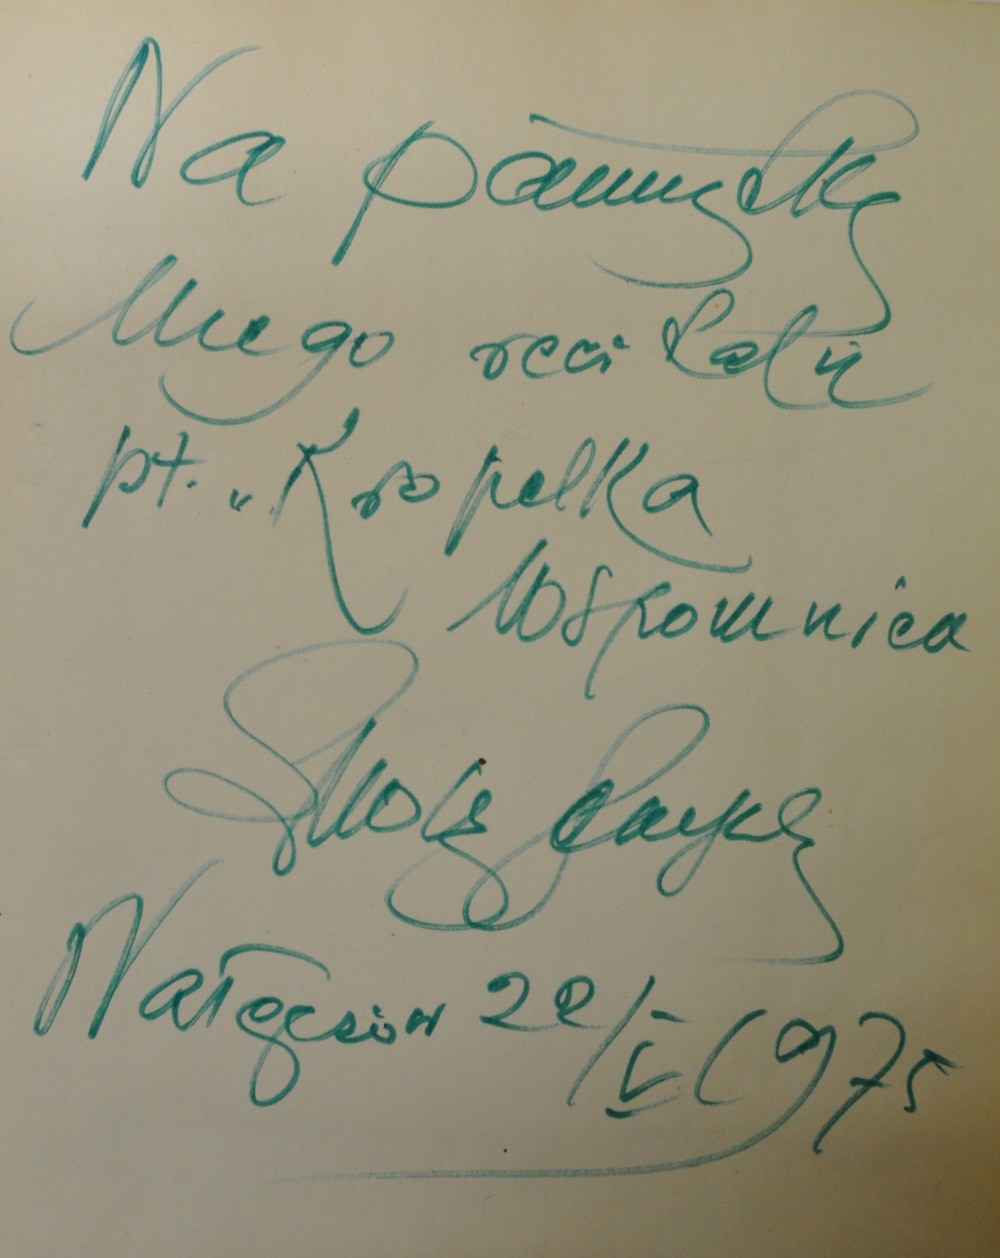 Na pamiątkę
Mego recitalu
pt. „Kropelka
Wspomnień
Nałęczów 22/V 1975